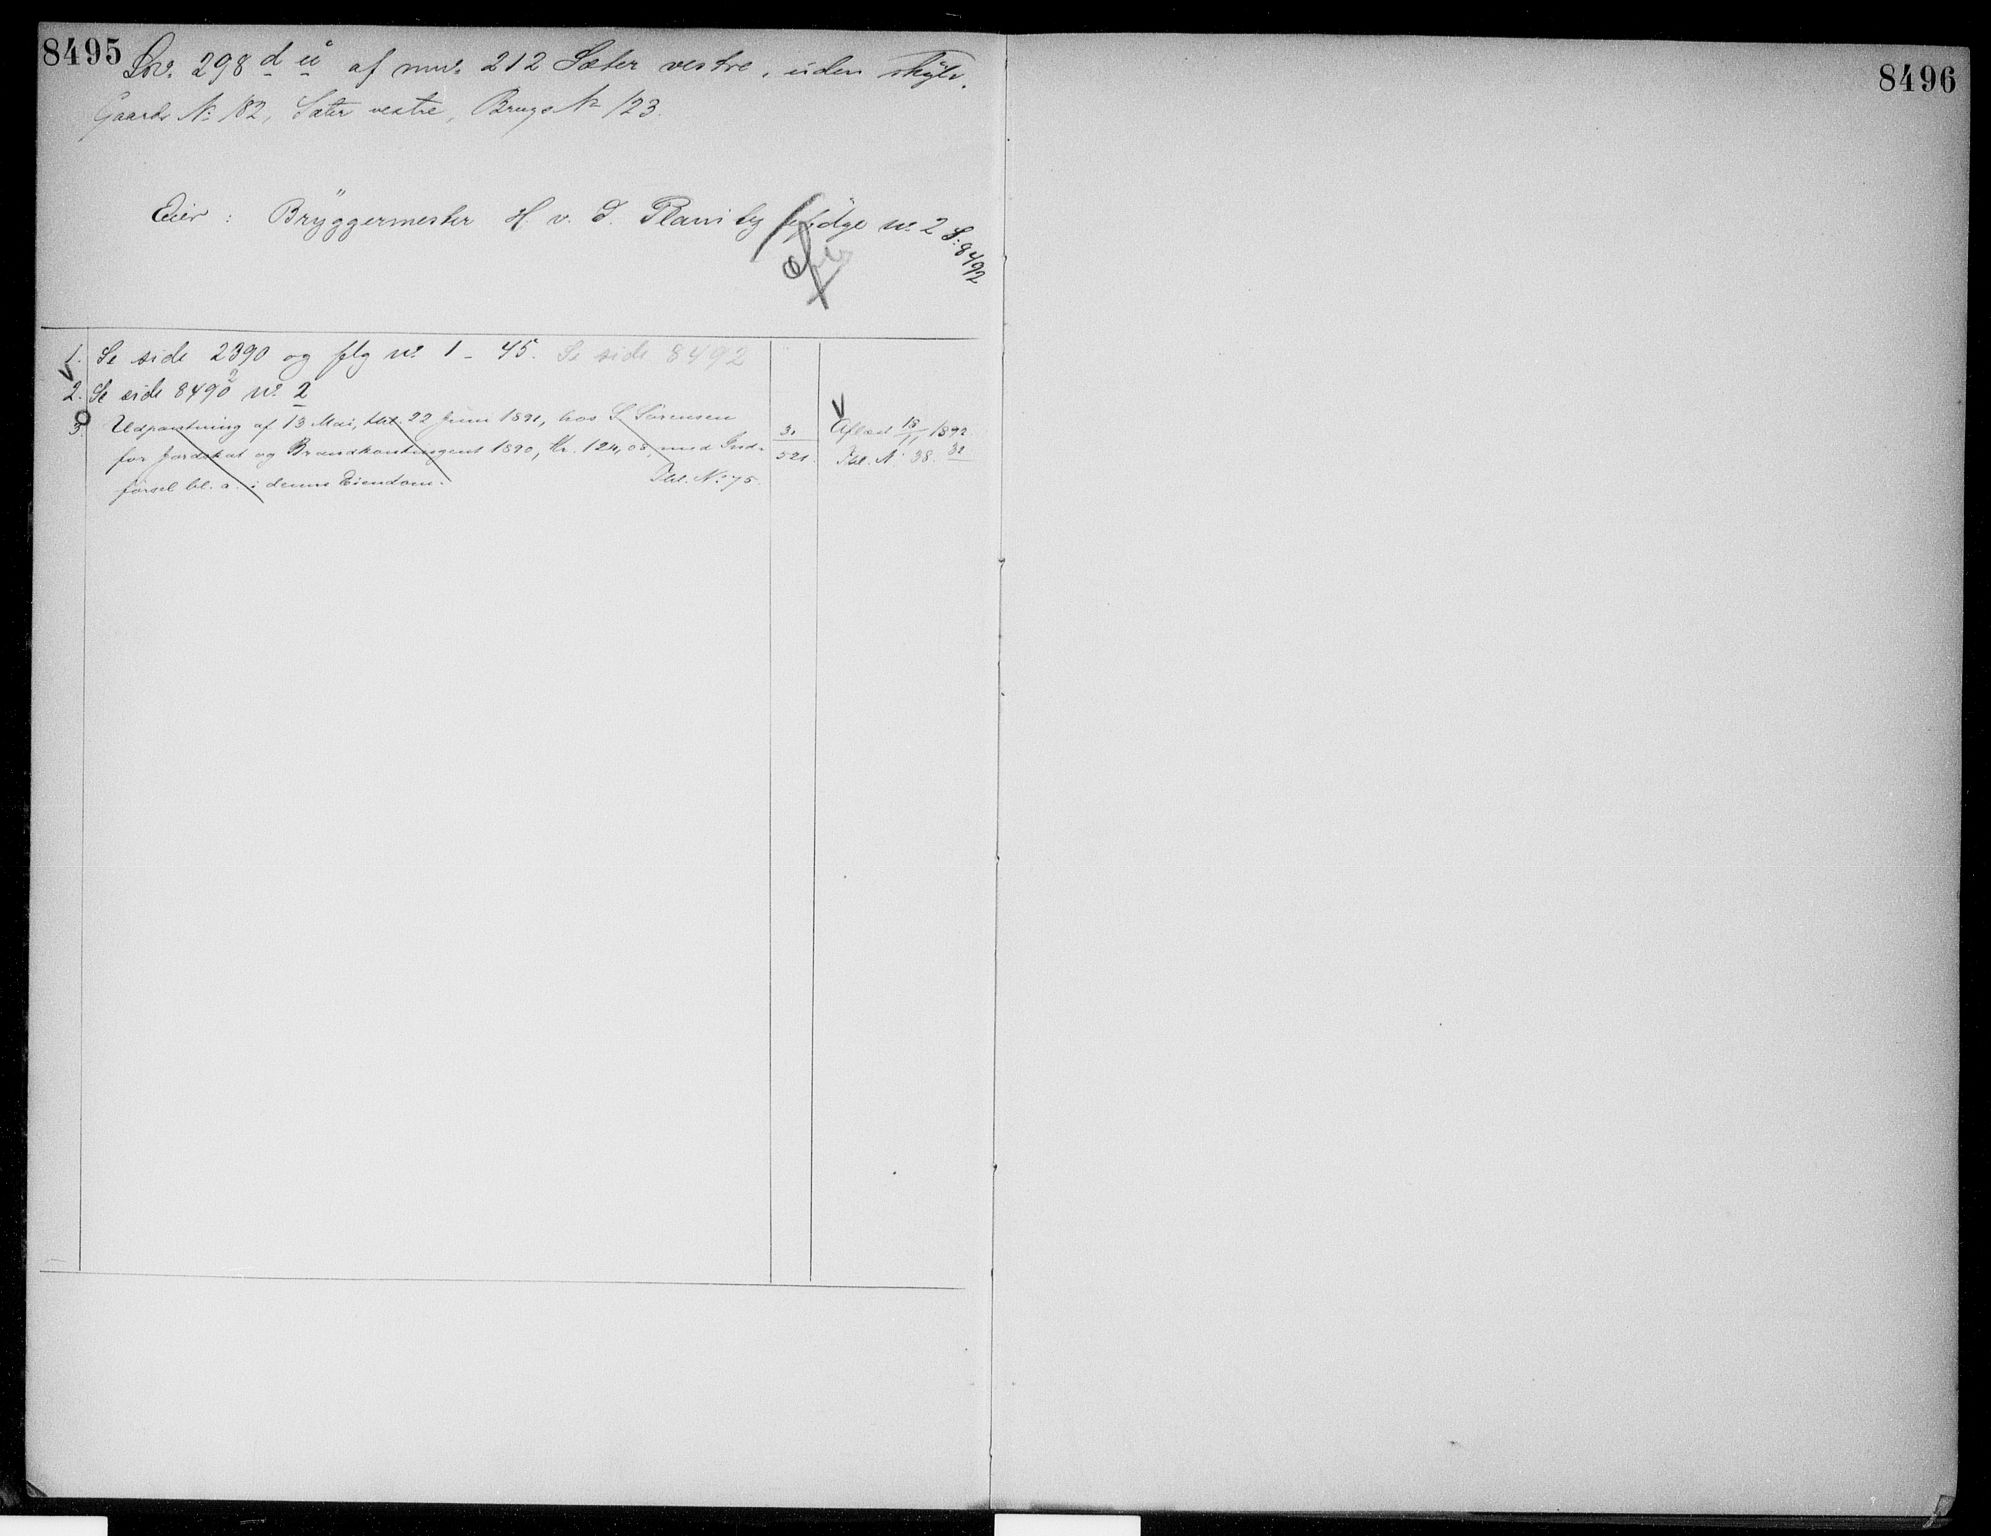 8495
Lnr. 298 d ü af mnr. 212 Sæter vestre, uden skyld.
Gaards No 182, Sæter vestre, Brugs No 123.
Eier : Bryggermester H. v. d. ifølge no 2 S: 8492
1. Se side 2390 og flg no 1 - 45. Se side 8492
2. Se side 8492 no 2
3. Udpantning af 13 Mai, thl. 22 Juni 1891, hos S. Sørensen
for Jordskat og Brandkontingent 1890, Kr. 124,08, med Ind-
førsel bl. a. i denne Eiendom. Thl. No 75.
31
521.
Aflæst 15/11 1892
Thl. No 38. 32
8496